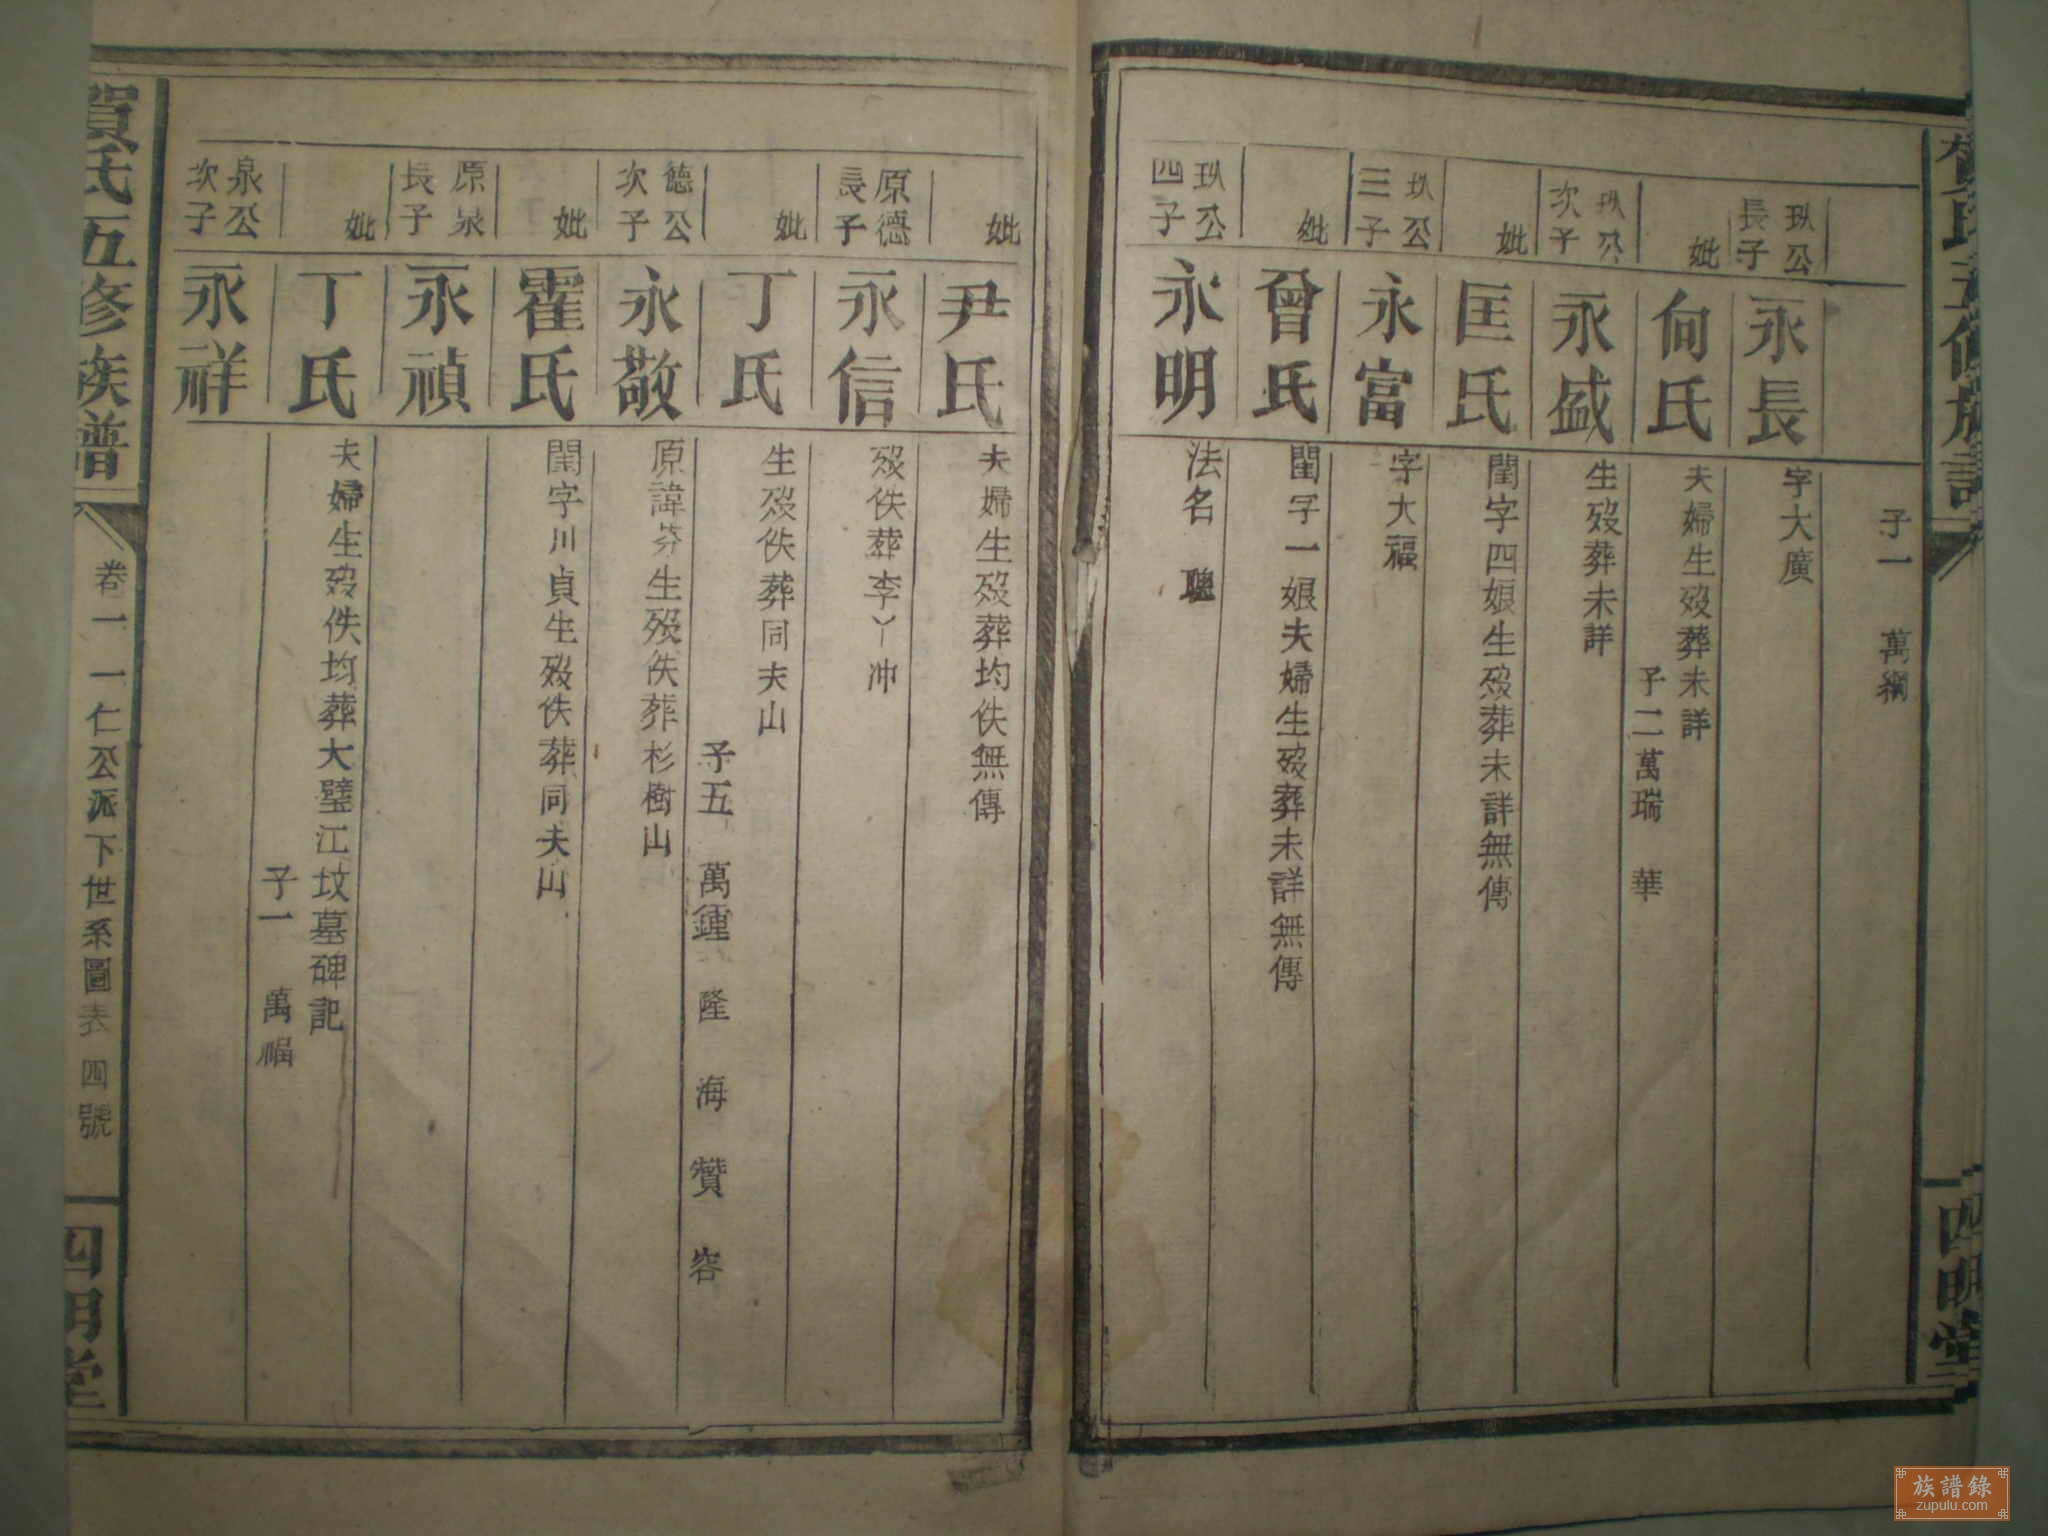 子一 萬綱
玖公長子
永長
字大廣
妣
向氏
夫婦生歿葬未詳
子二萬瑞 華
玖公次子
永盛
生歿葬未詳
妣
匡氏
閨字四娘生歿葬未詳無傳
玖公三子
永富
字大福
妣
曾氏
閨字一娘夫婦生歿葬未詳無傳
玖公四子
永明
法名 聰
四明堂
妣
尹氏
夫婦生歿葬均佚無傳
原德長子
永信
歿佚葬李丫冲
妣
丁氏
生歿佚葬同夫山
子五 萬鍾 隆 海 贊 容
德公次子
永敬
原諱芬生歿佚葬杉樹山
妣
霍氏
閨字川貞生歿佚葬同夫山
原泉長子
永禎
妣
丁氏
夫婦生歿佚均葬大壁江坟墓碑記
子一 萬福
泉公次子
永祥
賀氏五修族譜
卷一 一仁公派下世系圖表 四號
四明堂
族譜錄
zupulu.com